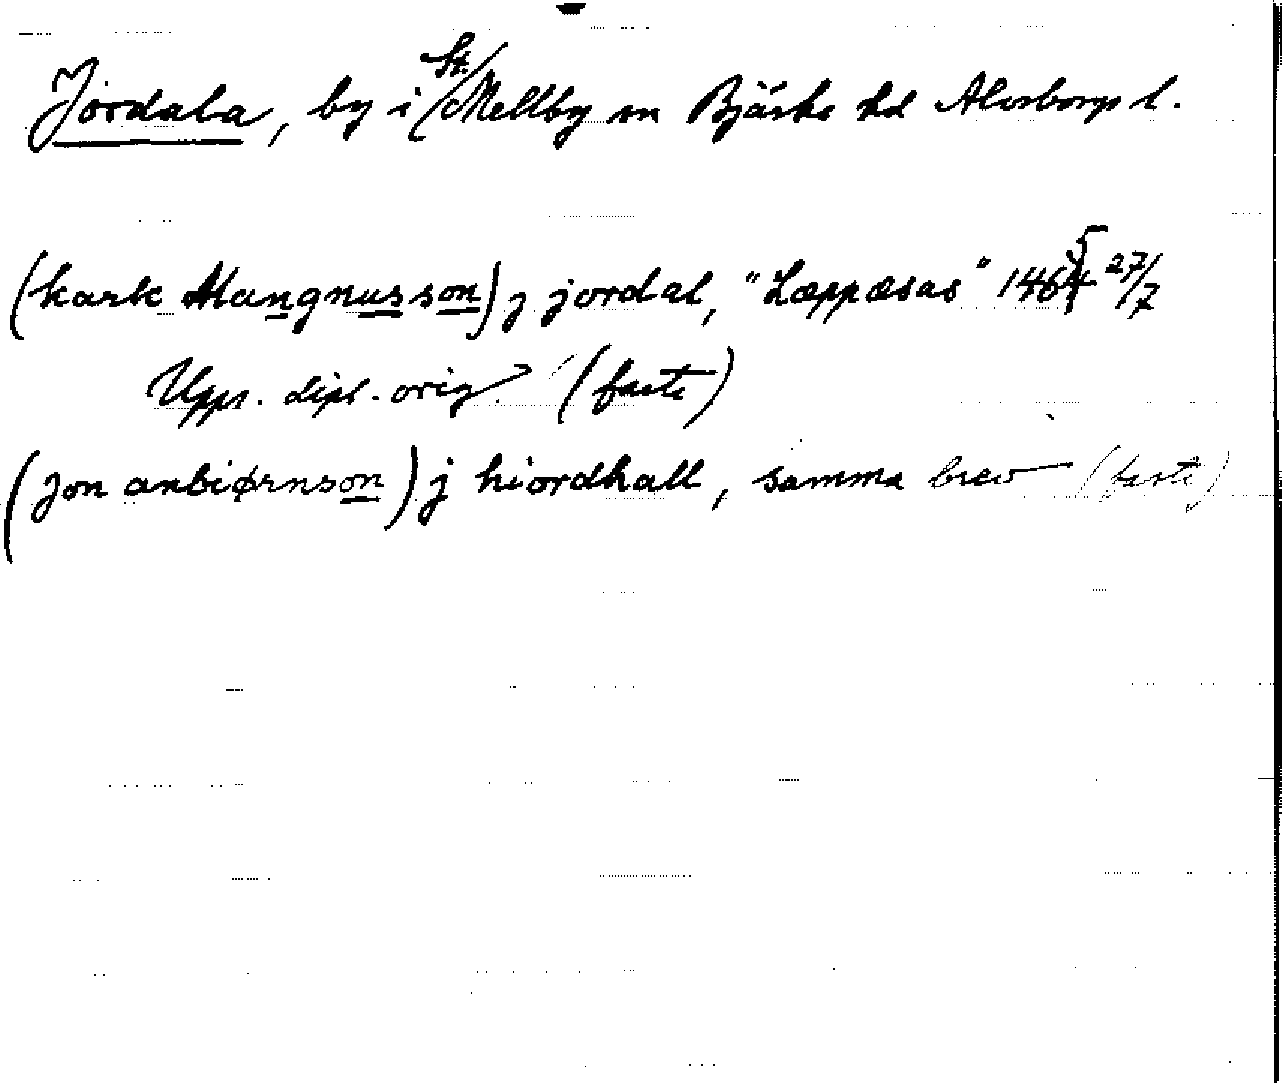 Jordala, by i St. Mellby sn Bjärke hd Älvsborgs l.
(karle Mangnusson) j jordal, "Læppæsas" 1465 27/7
Upps. dipl. orig. (faste)
(jon anbiørnson) j hiordhall, samma brev (faste)